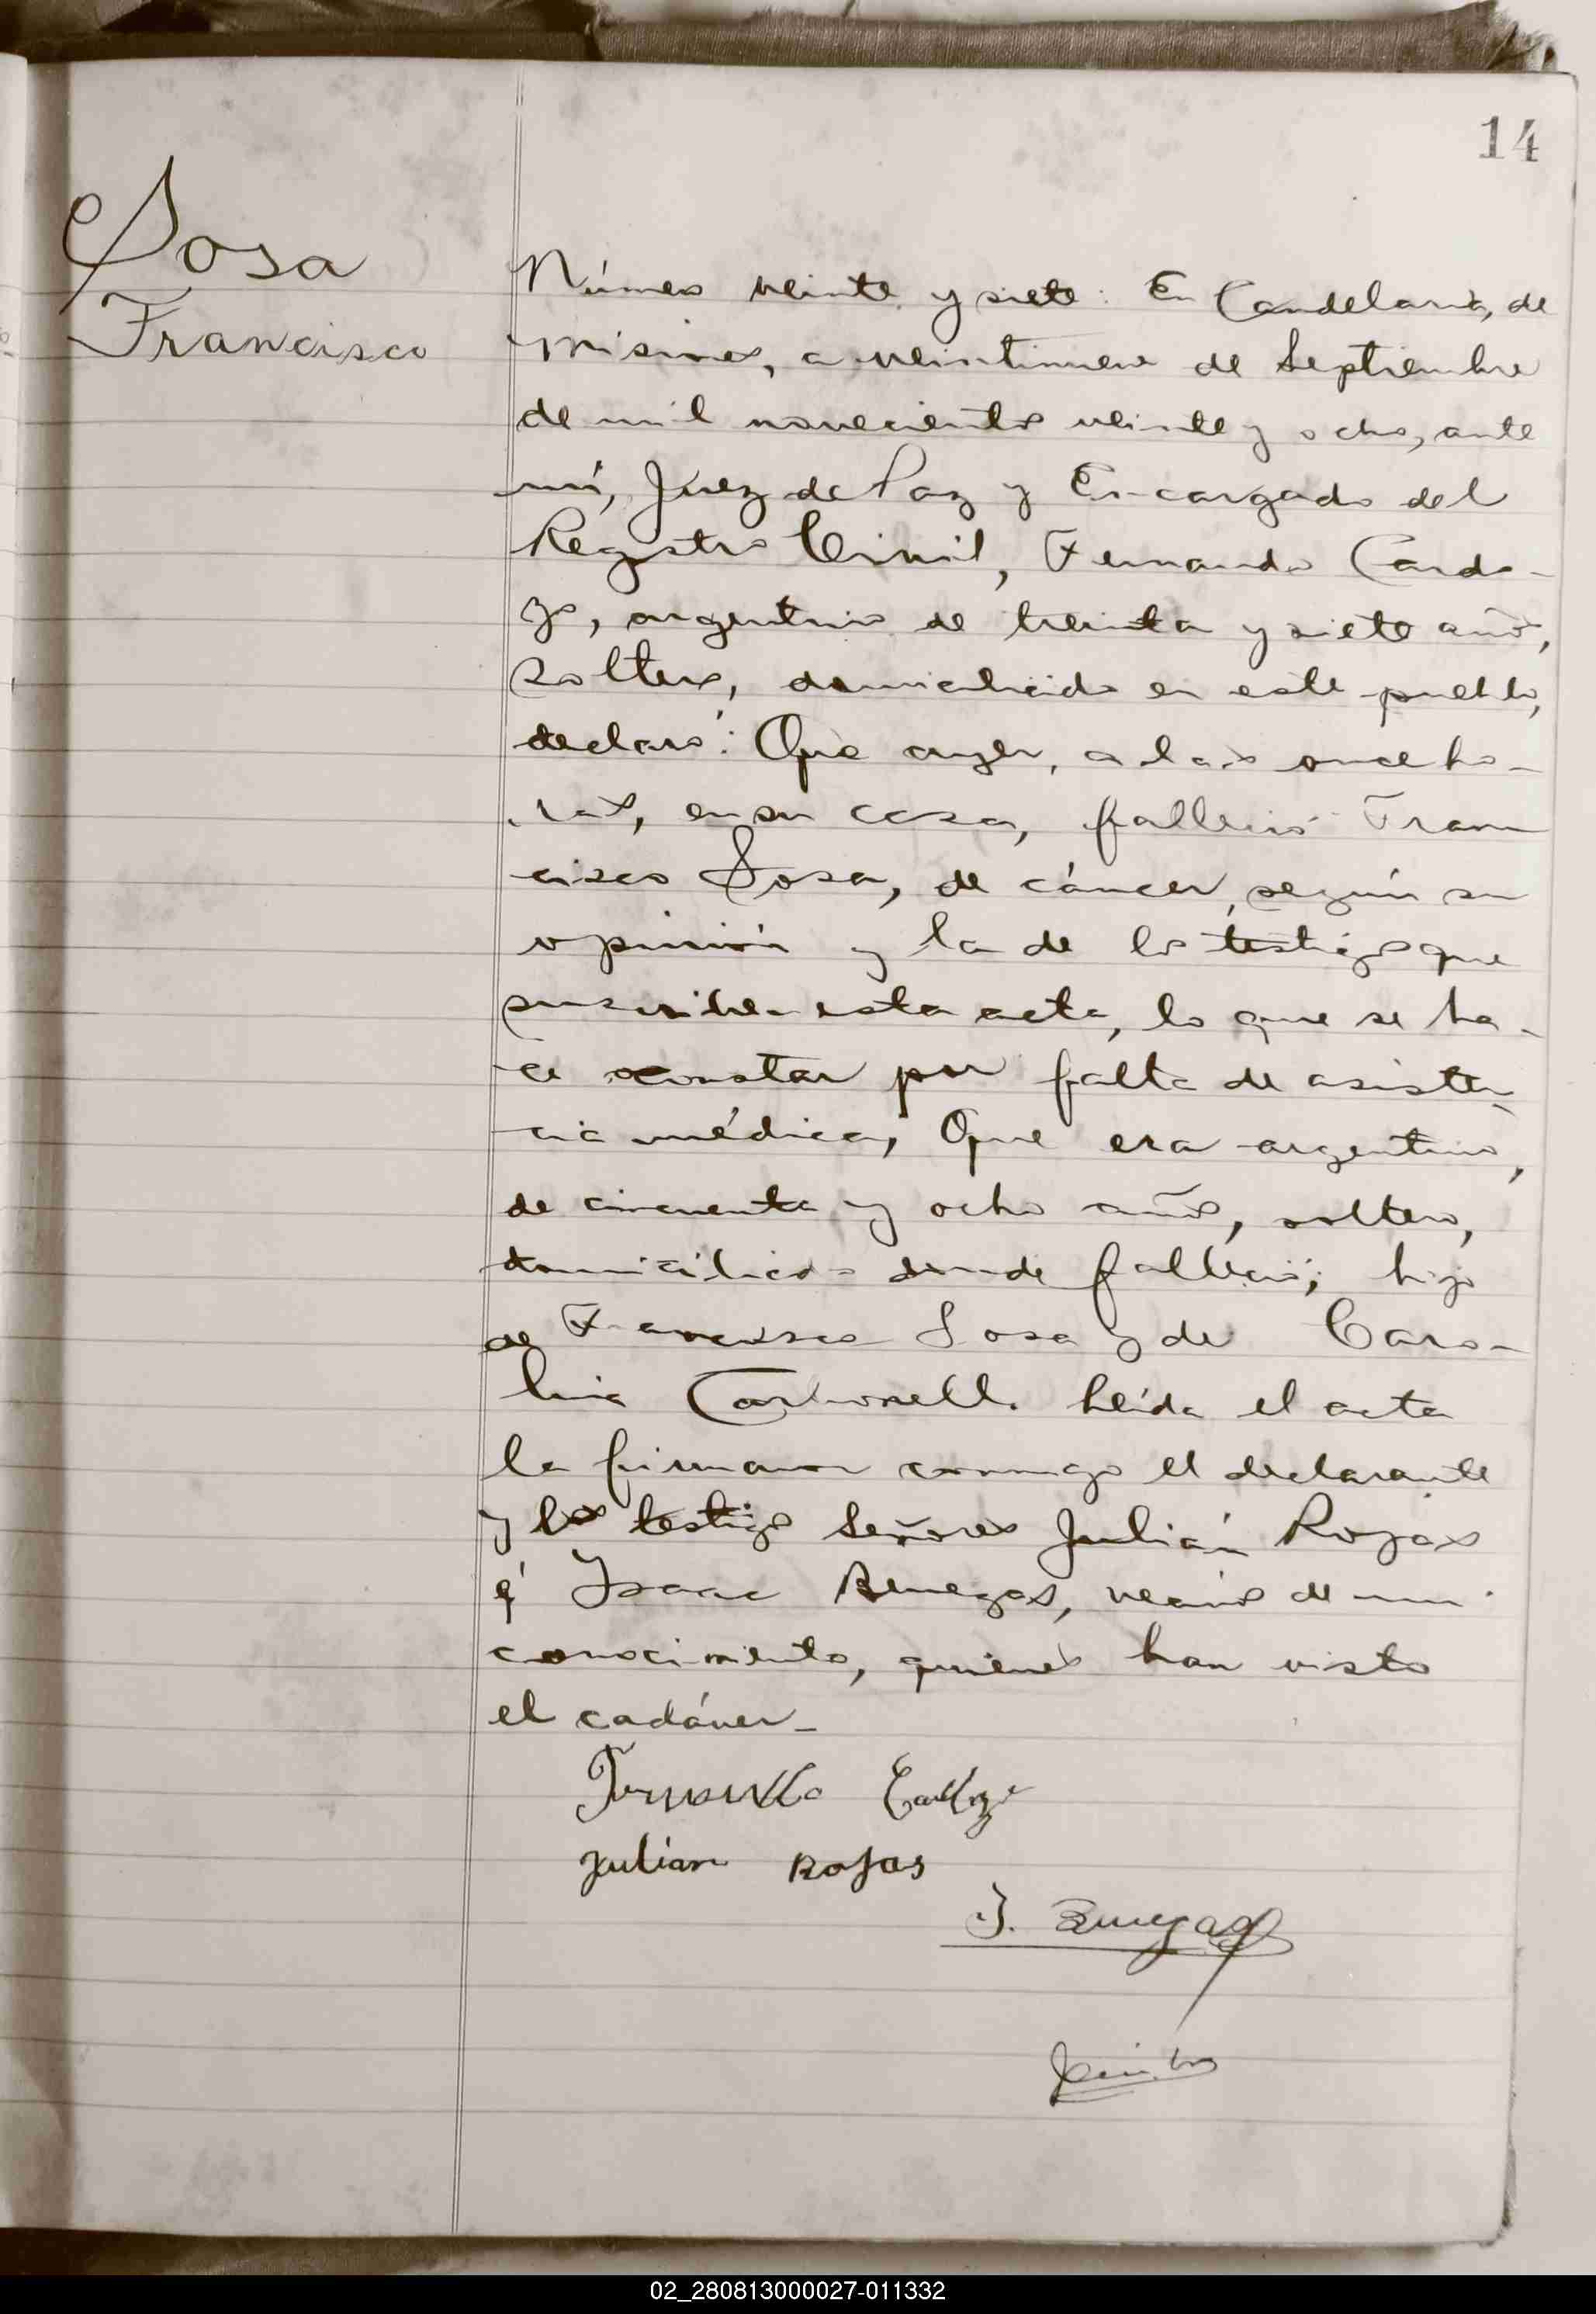 14
Sosa
Francisco
Número veinte y siete: En Candelaria, de
Misiones, a veintinueve de Septiembre
de mil novecientos veinte y ocho, ante
mí, Juez de Paz y Encargado del
Registro Civil, Fernando Cardo-
zo, argentino de treinta y siete años,
soltero, domiciliado en este pueblo,
declaró: Que ayer, a las once ho-
ras, en su casa, falleció Fran
cisco Sosa, de cáncer, según su
opinión y la de los testigos que
suscriben esta acta, lo que se ha-
ce constar por falta de asisten-
cia médica, Que era argentino,
de cincuenta y ocho años, soltero,
domiciliado donde falleció; hijo
de Francisco Sosa y de Caro-
lina Carbonell. Leída el acta
la firmaron conmigo el declarante
y los testigos Señores Julián Rojas
é Isaac Benegas, vecinos de mi
conocimiento, quienes han visto
el cadáver-
Fernando Cardozo
Julian Rojas
I. Benegas
02_280813000027-011332